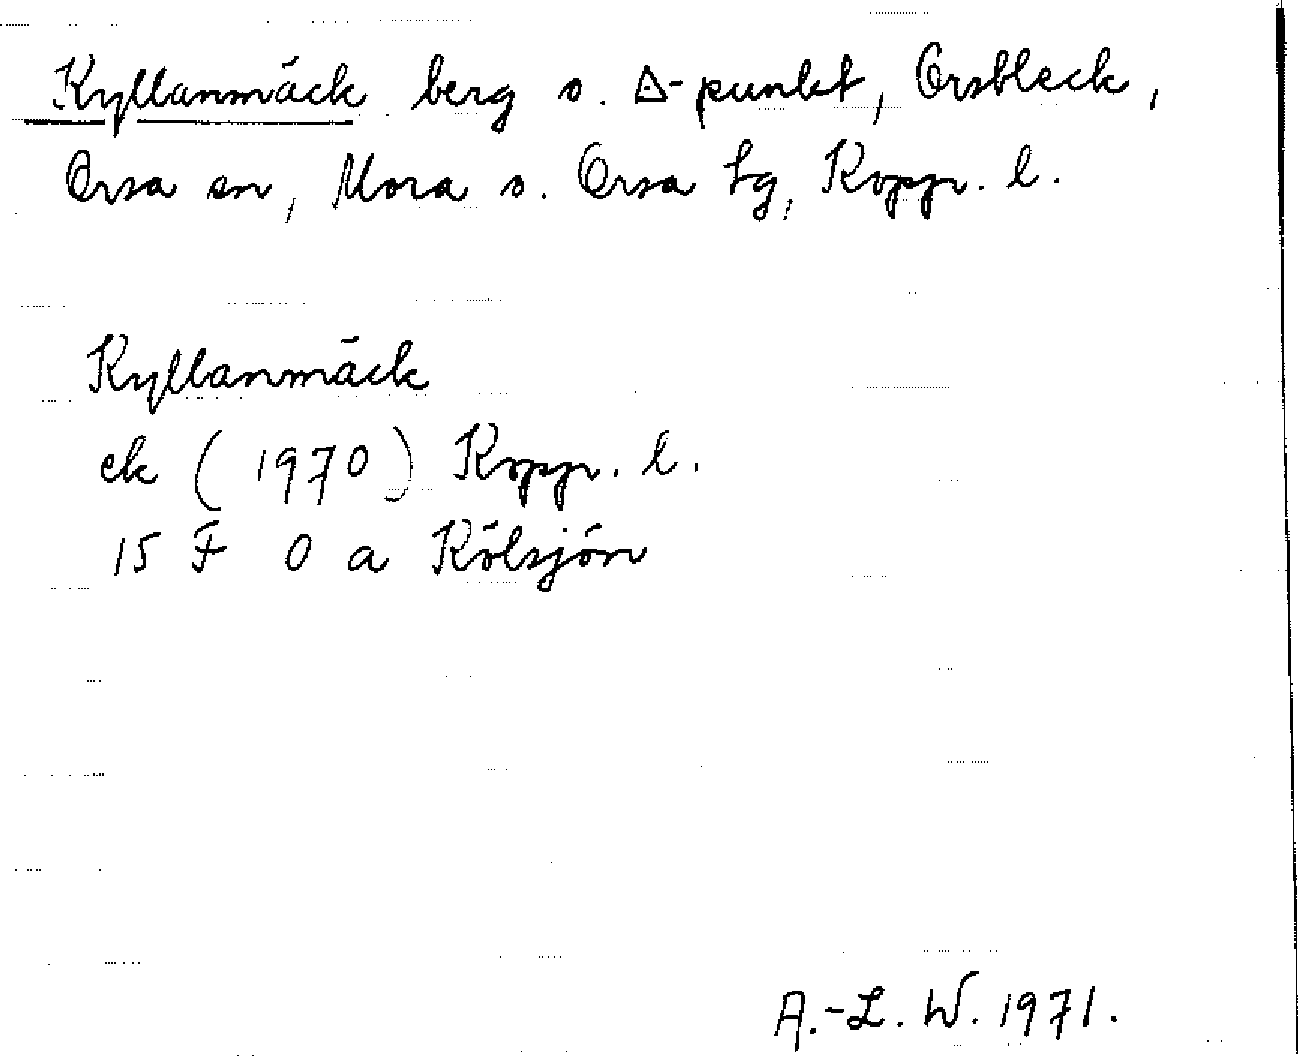 Kyllanmäck berg o. ∆-punkt, Orsbleck,
Orsa sn, Mora o. Orsa tg, Kopp. l.
Kyllanmäck
ek (1970) Kopp. l.
15 F 0 a Kölsjön
A.-L. W. 1971.